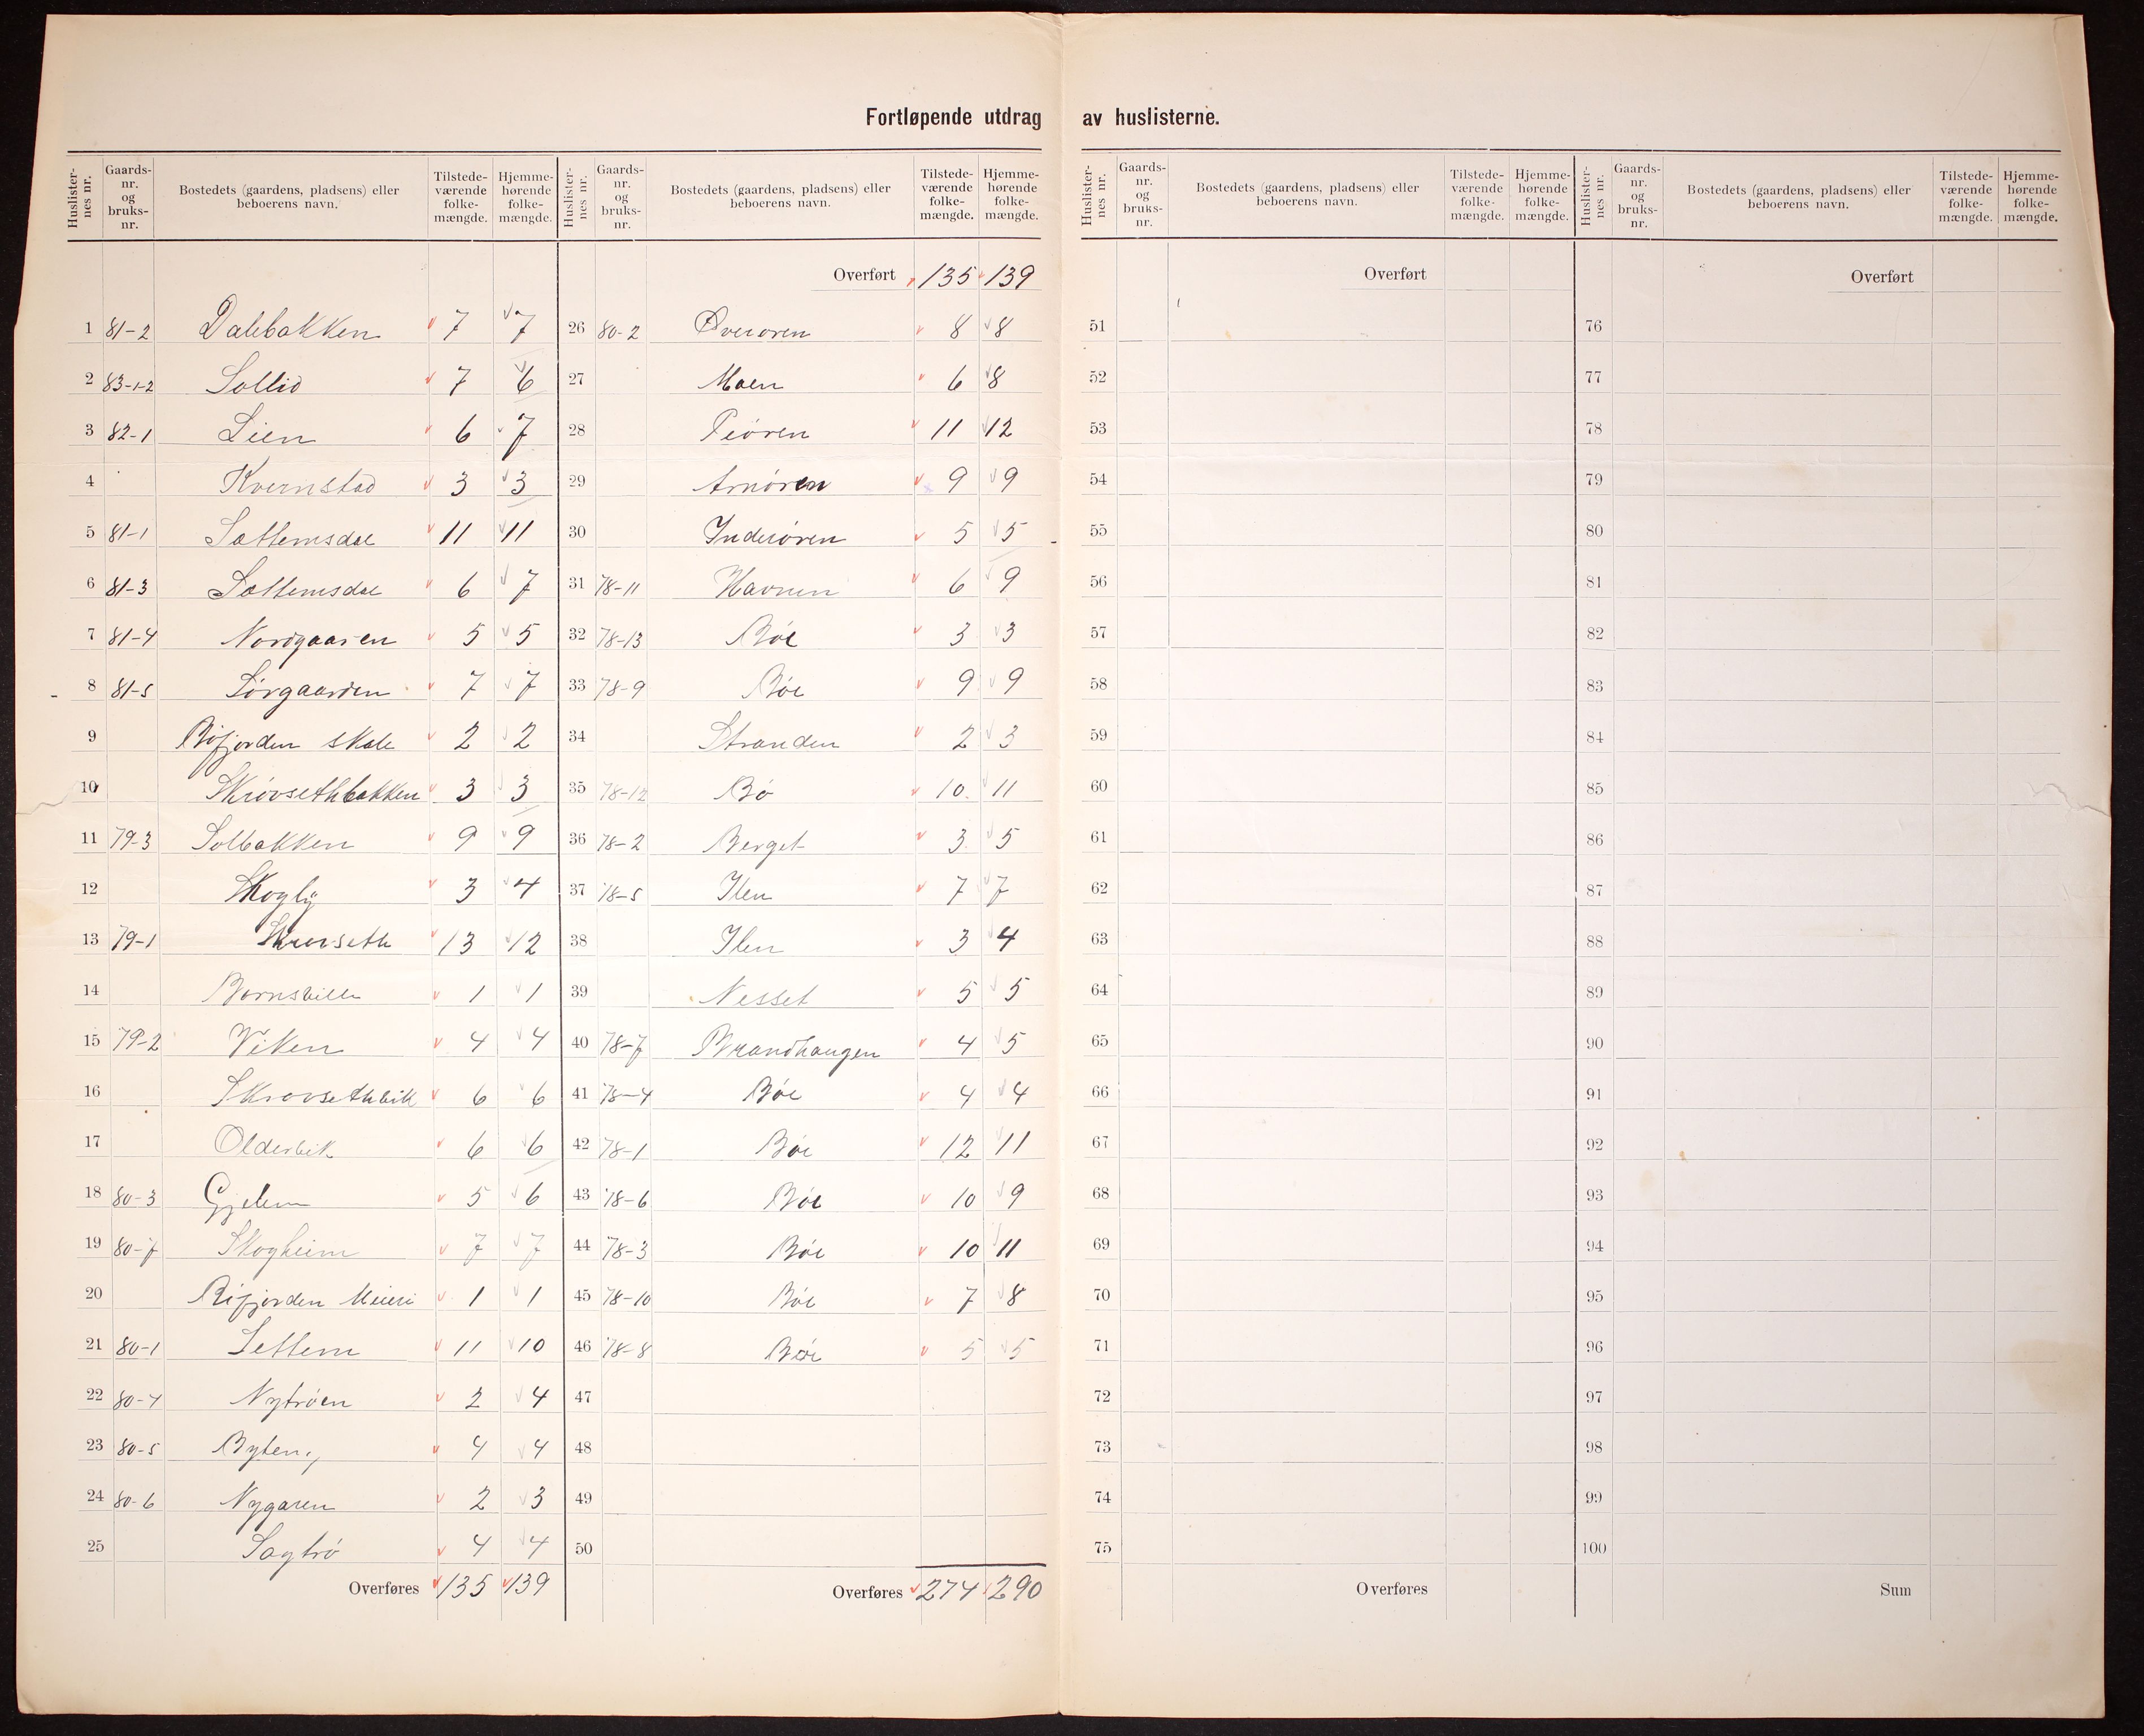 Fortløpende utdrag av huslisterne.
Huslisternes nr. Gaards-nr. og bruks-nr. Bostedets (gaardens, pladsens) eller beboerens navn. Tilstedeværende folkemængde. Hjemmehørende folkemængde.
1 81-2 Dalebakken 7 7
2 83-1-2 Sollid 7 6
3 82-1 Lien 6 7
4 Kvernstad 3 3
5 81-1 Settemsdal 11 11
6 81-3 Settemsdal 6 7
7 81-4 Nordgaaren 5 5
8 81-5 Sørgaarden 7 7
9 Bøfjorden skole 2 2
10 Skrøvsethbakken 3 3
11 79-3 Solbakken 9 9
12 Skogly 3 4
13 79-1 Skrovseth 13 12
14 1 1
15 79-2 Viken 4 4
16 Skrovsethvik 6 6
17 Oldervik 6 6
18 80-3 Gjelen 5 6
19 80-7 Skogheim 7 7
20 Bøfjorden Meieri 1 1
21 80-1 Settem 11 10
22 80-4 Nytrøen 2 4
23 80-5 4 4
24 80-6 Nygaren 2 3
25 Sagtrø 4 4
Overføres 135 139
Huslisternes nr. Gaards-nr. og bruks-nr. Bostedets (gaardens, pladsens) eller beboerens navn. Tilstedeværende folkemængde. Hjemmehørende folkemængde.
Overført 135 139
26 80-2 Øverøren 8 8
27 Moen 6 8
28 Peøren 11 12
29 Arnøren 9 9
30 Inderøren 5 5
31 78-11 Havnen 6 9
32 78-13 Bøe 3 3
33 78-9 Bøe 9 9
34 Stranden 2 3
35 78-12 Bø 10 11
36 78-2 Berget 3 5
37 78-5 Ilen 7 7
38 Ilen 3 4
39 Nesset 5 5
40 78-7 Brandhaugen 4 5
41 78-4 Bøe 4 4
42 78-1 Bøe 12 11
43 78-6 Bøe 10 9
44 78-3 Bøe 10 11
45 78-10 Bøe 7 8
46 78-8 Bøe 5 5
47
48
49
50
Overføres 274 290
Huslisternes nr. Gaards-nr. og bruks-nr. Bostedets (gaardens, pladsens) eller beboerens navn. Tilstedeværende folkemængde. Hjemmehørende folkemængde.
Overført
51
52
53
54
55
56
57
58
59
60
61
62
63
64
65
66
67
68
69
70
71
72
73
74
75
Overføres
Huslisternes nr. Gaards-nr. og bruks-nr. Bostedets (gaardens, pladsens) eller beboerens navn. Tilstedeværende folkemængde. Hjemmehørende folkemængde.
Overført
76
77
78
79
80
81
82
83
84
85
86
87
88
89
90
91
92
93
94
95
96
97
98
99
100
Sum